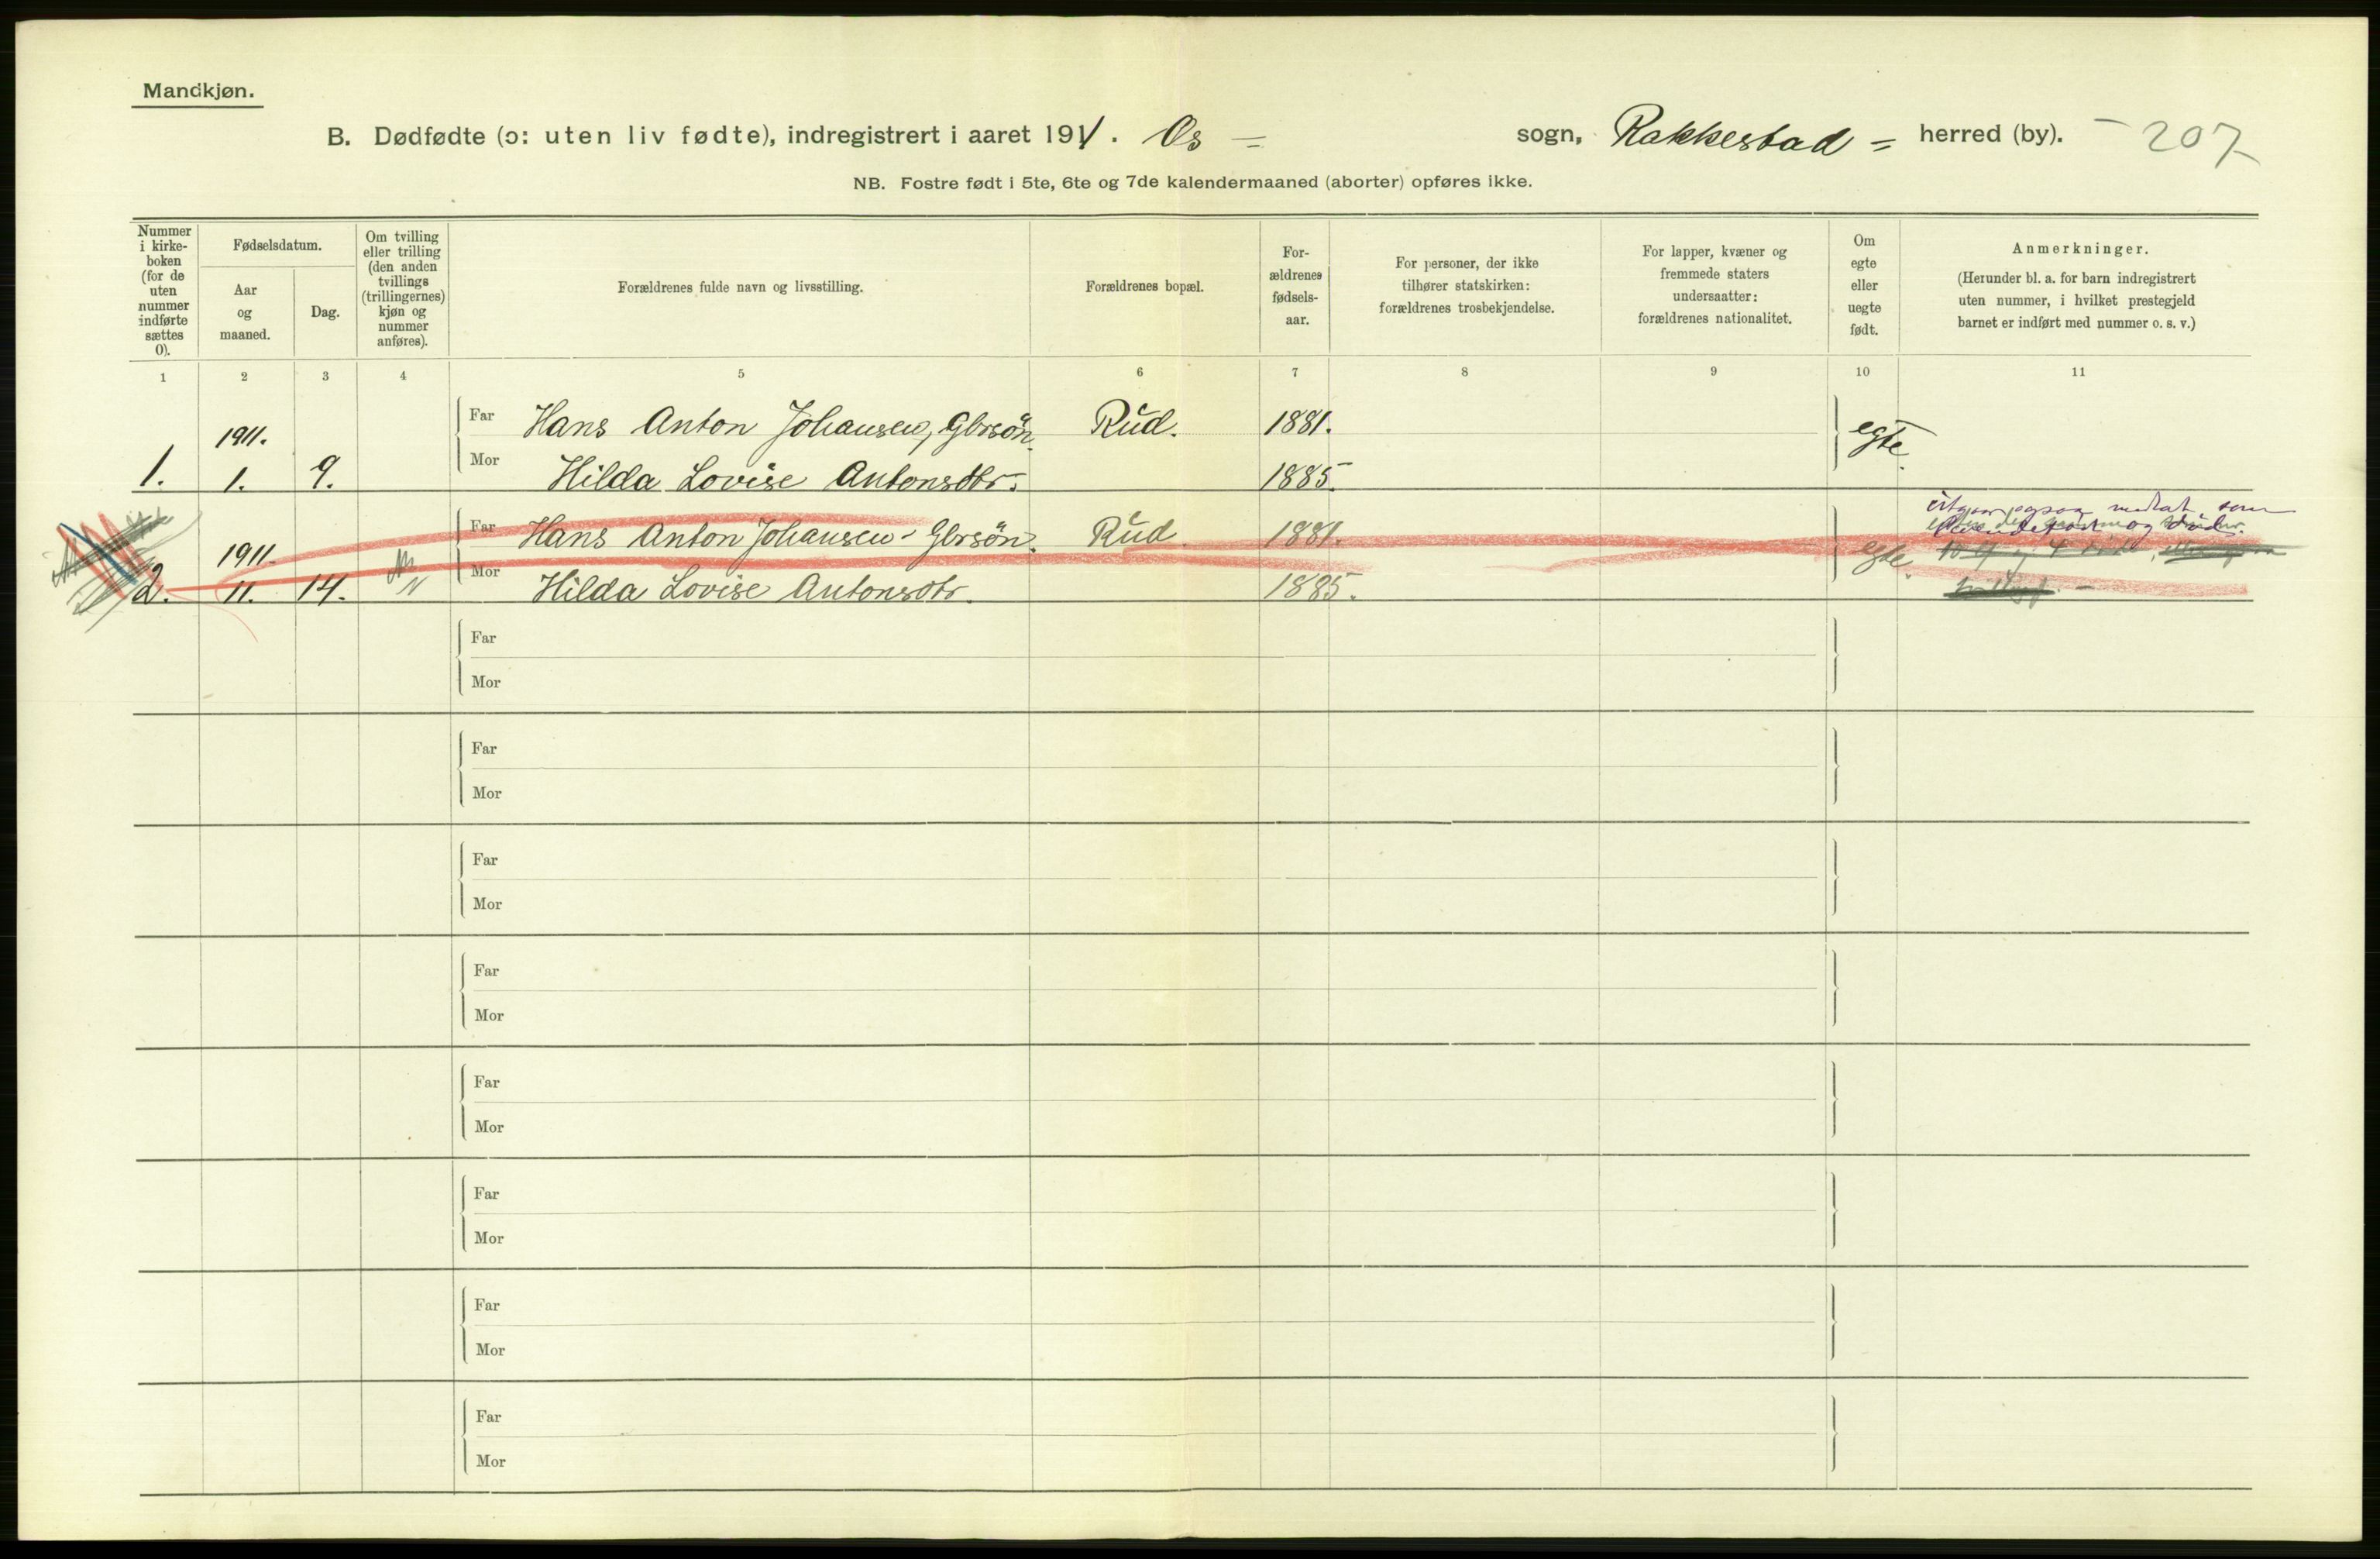 Mandkjøn.
B. Dødfødte (ɔ: uten liv fødte), indregistrert i aaret 1911. Os = sogn, Rakkestad = herred (by). - 207
NB. Fostre født i 5te, 6te og 7de kalendermaaned (aborter) opføres ikke.
Nummer
i kirke-
boken
(for de
uten
nummer
indførte
sættes
0).
Fødselsdatum.
Aar
og
maaned.
Dag.
Om tvilling
eller trilling
(den anden
tvillings
(trillingernes)
kjøn og
nummer
anføres).
Forældrenes fulde navn og livsstilling.
Forældrenes bopæl.
For-
ældrenes
fødsels-
aar.
For personer, der ikke
tilhører statskirken:
forældrenes trosbekjendelse.
For lapper, kvæner og
fremmede staters
undersaatter:
forældrenes nationalitet.
Om
egte
eller
uegte
født.
Anmerkninger.
(Herunder bl. a. for barn indregistrert
uten nummer, i hvilket prestegjeld
barnet er indført med nummer o. s. v.)
1 2 3 4 5 6 7 8 9 10 11
Far Hans Anton Johansen, Gbrsön. Rud. 1881.
1911. egte.
1. 1. 9. Mor Hilda Lovise Antonsdtr. 1885.
Far Hans Anton Johansen - Gbrsön. Rud. 1881.
1911. egte.
2. 11. 14. Mor Hilda Lovise Antonsdtr. 1885.
Far
Mor
Far
Mor
Far
Mor
Far
Mor
Far
Mor
Far
Mor
Far
Mor
Far
Mor